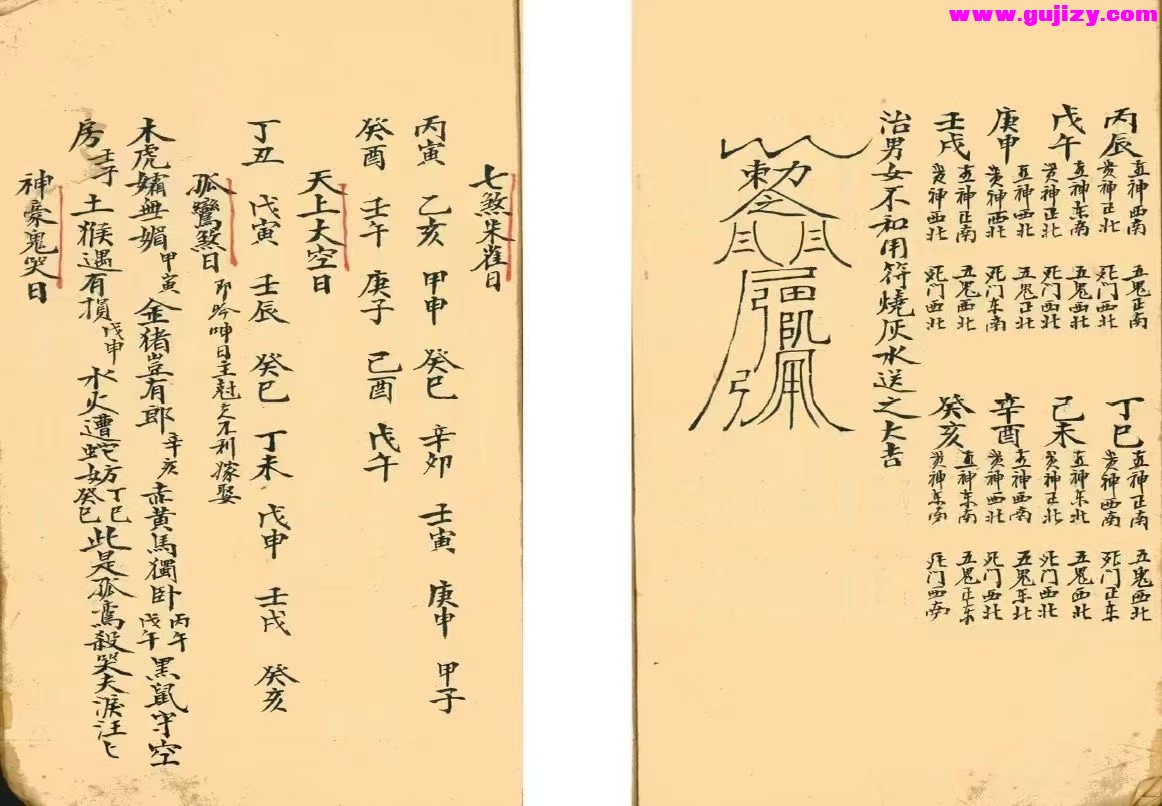 www.gujizy.com
丙辰 直神西南 贵神正北 五鬼正南 死门西北 丁巳 直神正南 贵神西南 五鬼西北 死门正东
戊午 直神东南 贵神正北 五鬼西北 死门西北 己未 直神东北 贵神正北 五鬼西北 死门西北
庚申 直神西北 贵神西北 五鬼正北 死门东南 辛酉 直神西南 贵神西北 五鬼东北 死门西北
壬戌 直神正南 贵神西北 五鬼西北 死门西北 癸亥 直神东南 贵神东南 五鬼正东 死门西南
治男女不和用符燒灰水送之大吉
七煞朱雀日
丙寅 乙亥 甲申 癸巳 辛卯 壬寅 庚申 甲子
癸酉 壬午 庚子 己酉 戊午
天上大空日
丁丑 戊寅 壬辰 癸巳 丁未 戊申 壬戌 癸亥
孤鸞煞日 即吟呻日主尅 不利嫁娶
木虎孀無媚 甲寅 金猪豈有郎 辛亥 赤黄馬獨卧 丙午 戊午 黑鼠守空
房 壬子 土猴遇有損 戊申 水火遭蛇 丁巳 癸巳 此是孤鸞殺哭夫淚汪匕
神豪鬼哭日